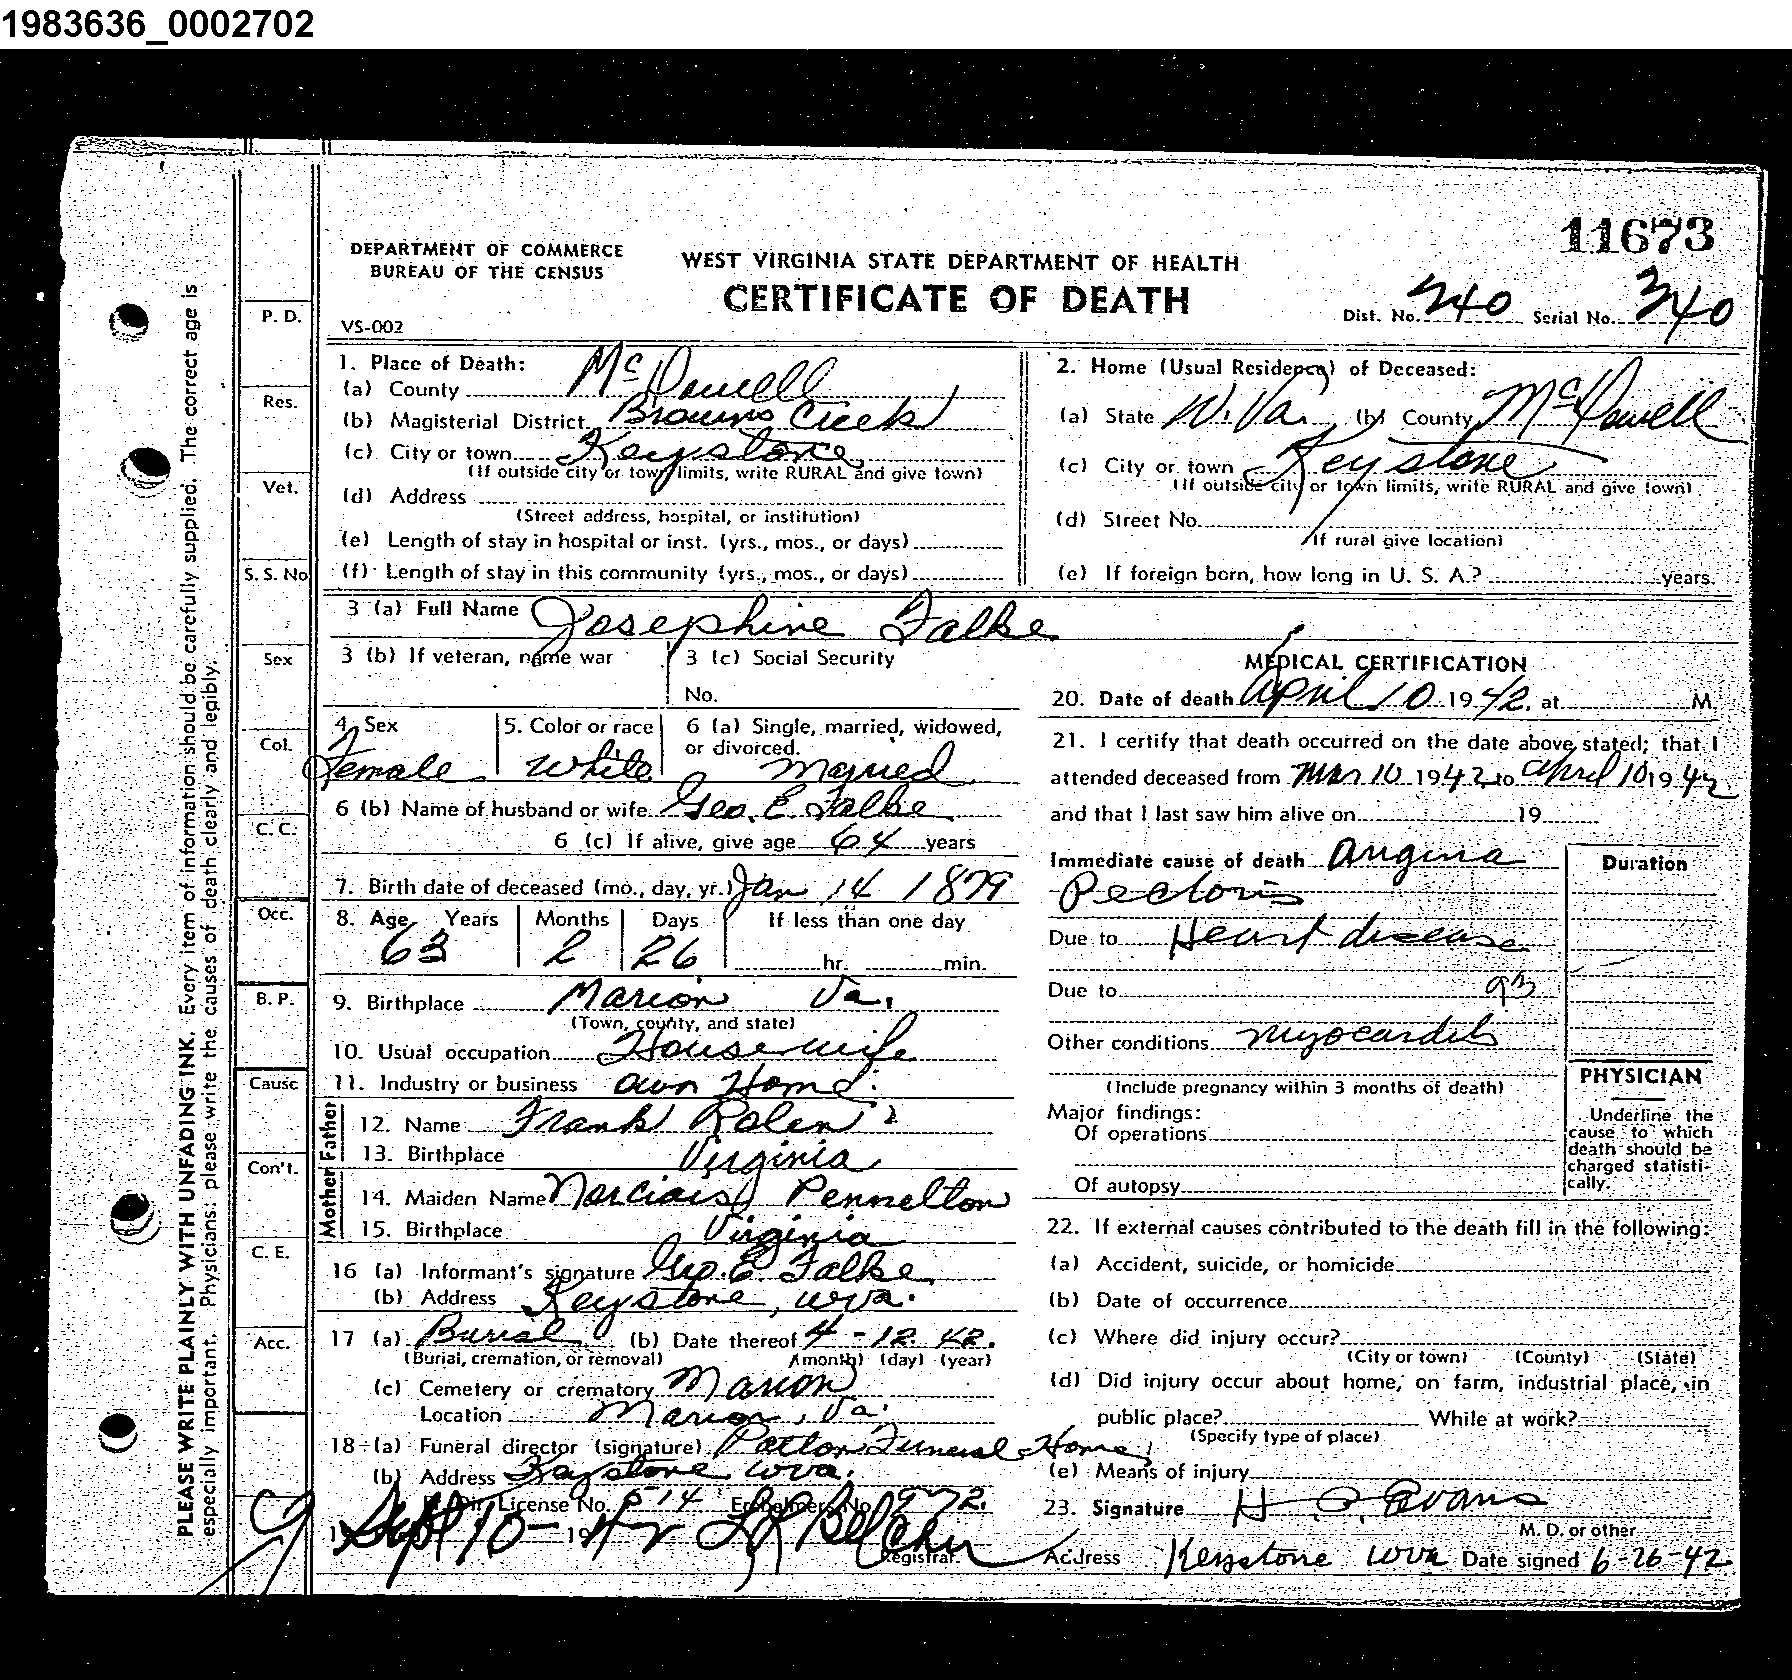 1983636_0002702
11673
DEPARTMENT OF COMMERCE
BUREAU OF THE CENSUS
WEST VIRGINIA STATE DEPARTMENT OF HEALTH
CERTIFICATE OF DEATH
VS-002
Dist. No. 240 Serial No. 340
PLEASE WRITE PLAINLY WITH UNFADING INK. Every item of information should be carefully supplied. The correct age is
especially important. Physicians: please write the causes of death clearly and legibly.
P. D.
Res.
Vet.
S. S. No
Sex
Col.
C. C.
Occ.
B. P.
Cause
Con't.
C. E.
Acc.
1. Place of Death:
(a) County McDowell
(b) Magisterial District Browns Creek
(c) City or town Keystone
(If outside city or town limits, write RURAL and give town)
(d) Address
(Street address, hospital, or institution)
(e) Length of stay in hospital or inst. (yrs., mos., or days)
(f) Length of stay in this community (yrs., mos., or days)
2. Home (Usual Residency) of Deceased:
(a) State W. Va. (b) County McDowell
(c) City or town Keystone
(If outside city or town limits, write RURAL and give town)
(d) Street No.
If rural give location)
(e) If foreign born, how long in U. S. A.? years.
3 (a) Full Name Josephine Falke
3 (b) If veteran, name war
3 (c) Social Security
No.
4. Sex 5. Color or race 6 (a) Single, married, widowed,
or divorced.
Female White Married
6 (b) Name of husband or wife Geo. E. Falke
6 (c) If alive, give age 64 years
7. Birth date of deceased (mo., day, yr.) Jan 14 1879
8. Age Years Months Days If less than one day
63 2 26 hr. min.
9. Birthplace Marion Va.
(Town, county, and state)
10. Usual occupation Housewife
11. Industry or business Own Home.
Father
12. Name Frank Rolen
13. Birthplace Virginia
Mother
14. Maiden Name Pennelton
15. Birthplace Virginia
16 (a) Informant's signature Geo. E. Falke
(b) Address Keystone, W Va.
17 (a) Burial (b) Date thereof 4-12-42.
(Burial, cremation, or removal) (month) (day) (year)
(c) Cemetery or crematory Marion
Location Marion, Va.
18-(a) Funeral director (signature) Patton Funeral Home
(b) Address Keystone, W Va.
License No. 514 Embalmers No. 972.
Sept 10-1942 Belcher
Registrar.
MEDICAL CERTIFICATION
20. Date of death April 10 1942. at M
21. I certify that death occurred on the date above stated; that I
attended deceased from Mar 10 1942 to April 10 1942
and that I last saw him alive on 19
Immediate cause of death Angina
Pectoris
Duration
Due to Heart disease
Due to
Other conditions
(Include pregnancy within 3 months of death)
Major findings:
Of operations
Of autopsy
PHYSICIAN
Underline the
cause to which
death should be
charged statisti-
cally.
22. If external causes contributed to the death fill in the following:
(a) Accident, suicide, or homicide
(b) Date of occurrence
(c) Where did injury occur?
(City or town) (County) (State)
(d) Did injury occur about home, on farm, industrial place, in
public place? While at work?
(Specify type of place)
(e) Means of injury
23. Signature Evans
M. D. or other
Address Keystone W Va Date signed 6-26-42